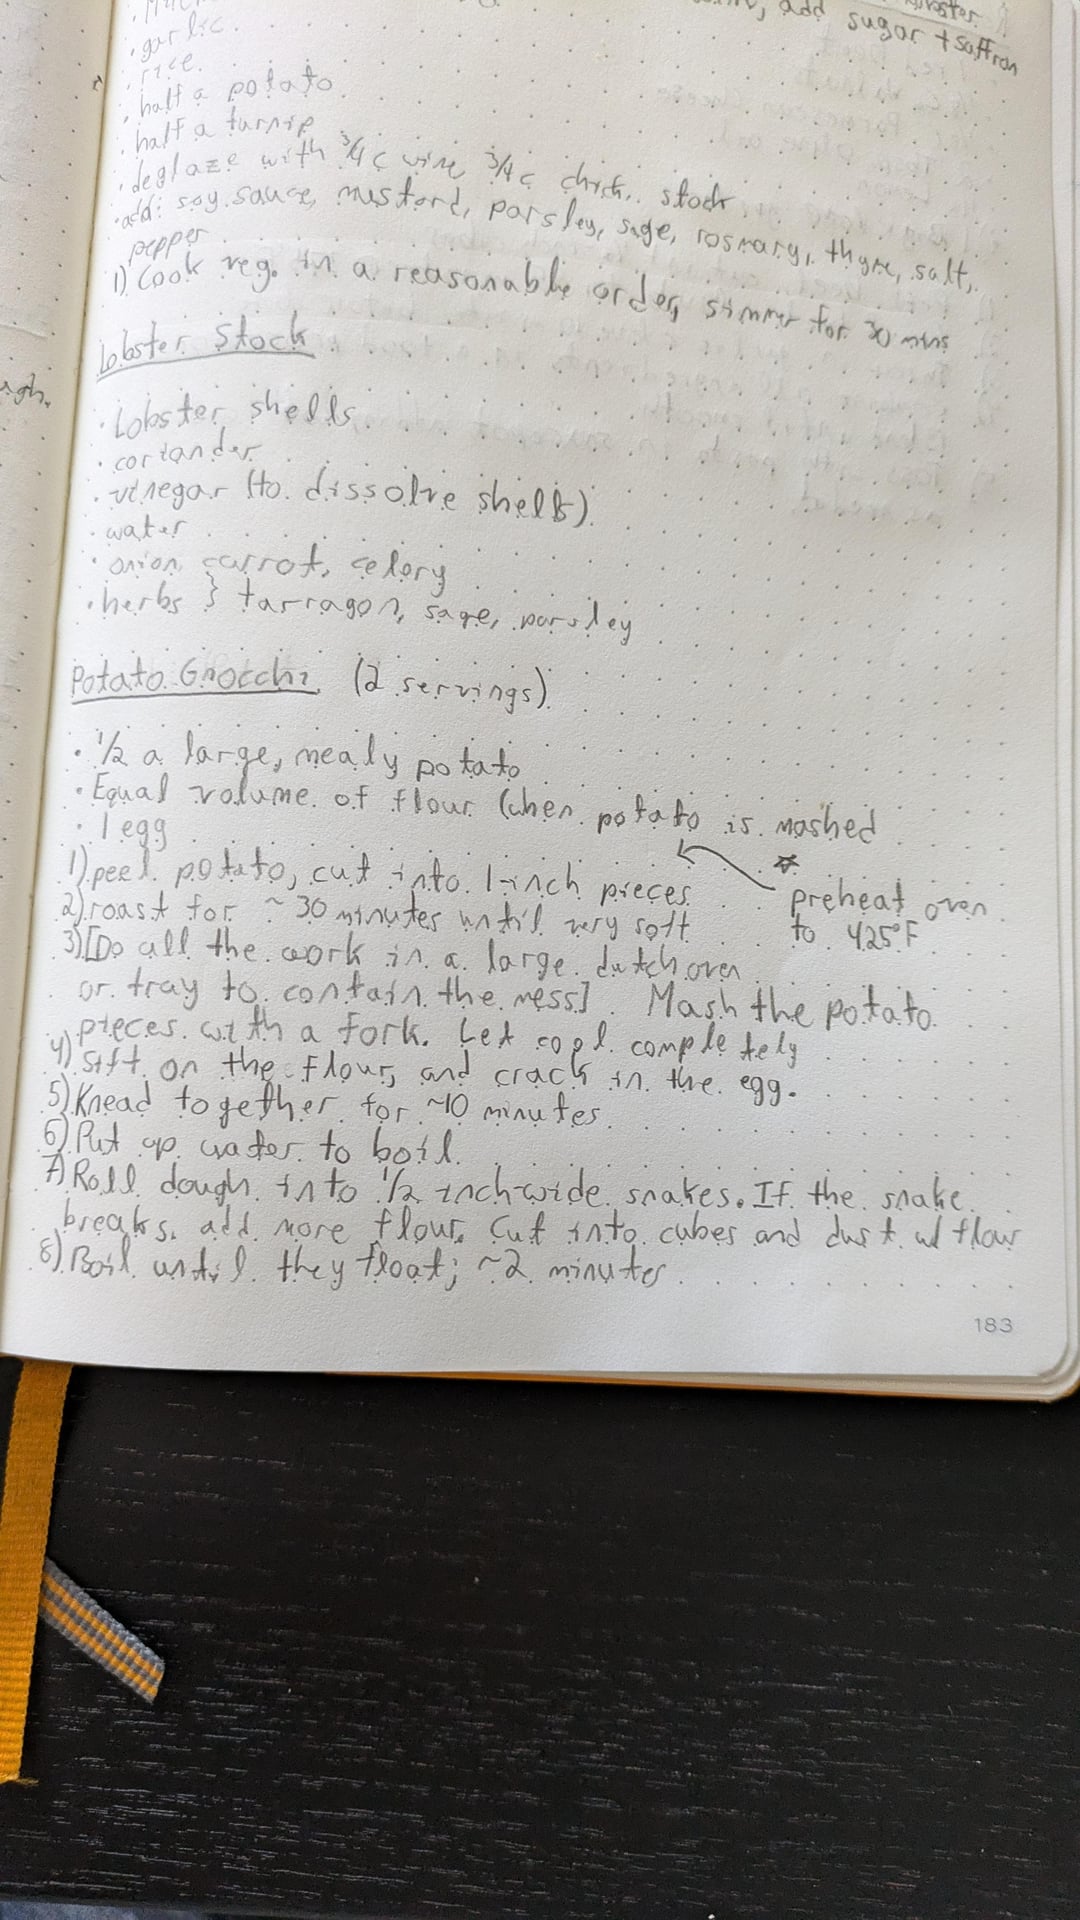 add sugar + saffron
• garlic
rice
• half a potato
• half a turnip
• deglaze with 3/4 c wine 3/4 c chick. stock
• add: soy sauce, mustard, parsley, sage, rosmary, thyme, salt,
pepper
1) Cook veg. in a reasonable order, simmer for 30 mins
Lobster Stock
• Lobster shells
• coriander
• vinegar (to dissolve shells)
• water
• onion, carrot, celery
• herbs } tarragon, sage, parsley
Potato Gnocchi (2 servings)
• 1/2 a large, mealy potato
• Equal volume of flour (when potato is mashed
• 1 egg
1) peel potato, cut into 1-inch pieces
☆ preheat oven
to 425°F
2) roast for ~30 minutes until very soft
3) [Do all the work in a large dutch oven
or tray to contain the mess] Mash the potato
pieces with a fork. Let cool completely
4) sift on the flour, and crack in the egg.
5) Knead together for ~10 minutes
6) Put up water to boil.
7) Roll dough into 1/2 inch-wide snakes. If the snake
breaks, add more flour. Cut into cubes and dust w/ flour
8) Boil until they float; ~2 minutes
183